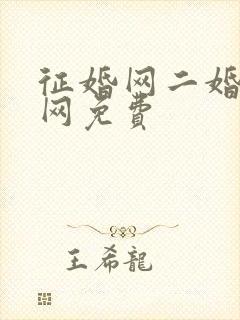 征婚网二婚
网免费
王希龍